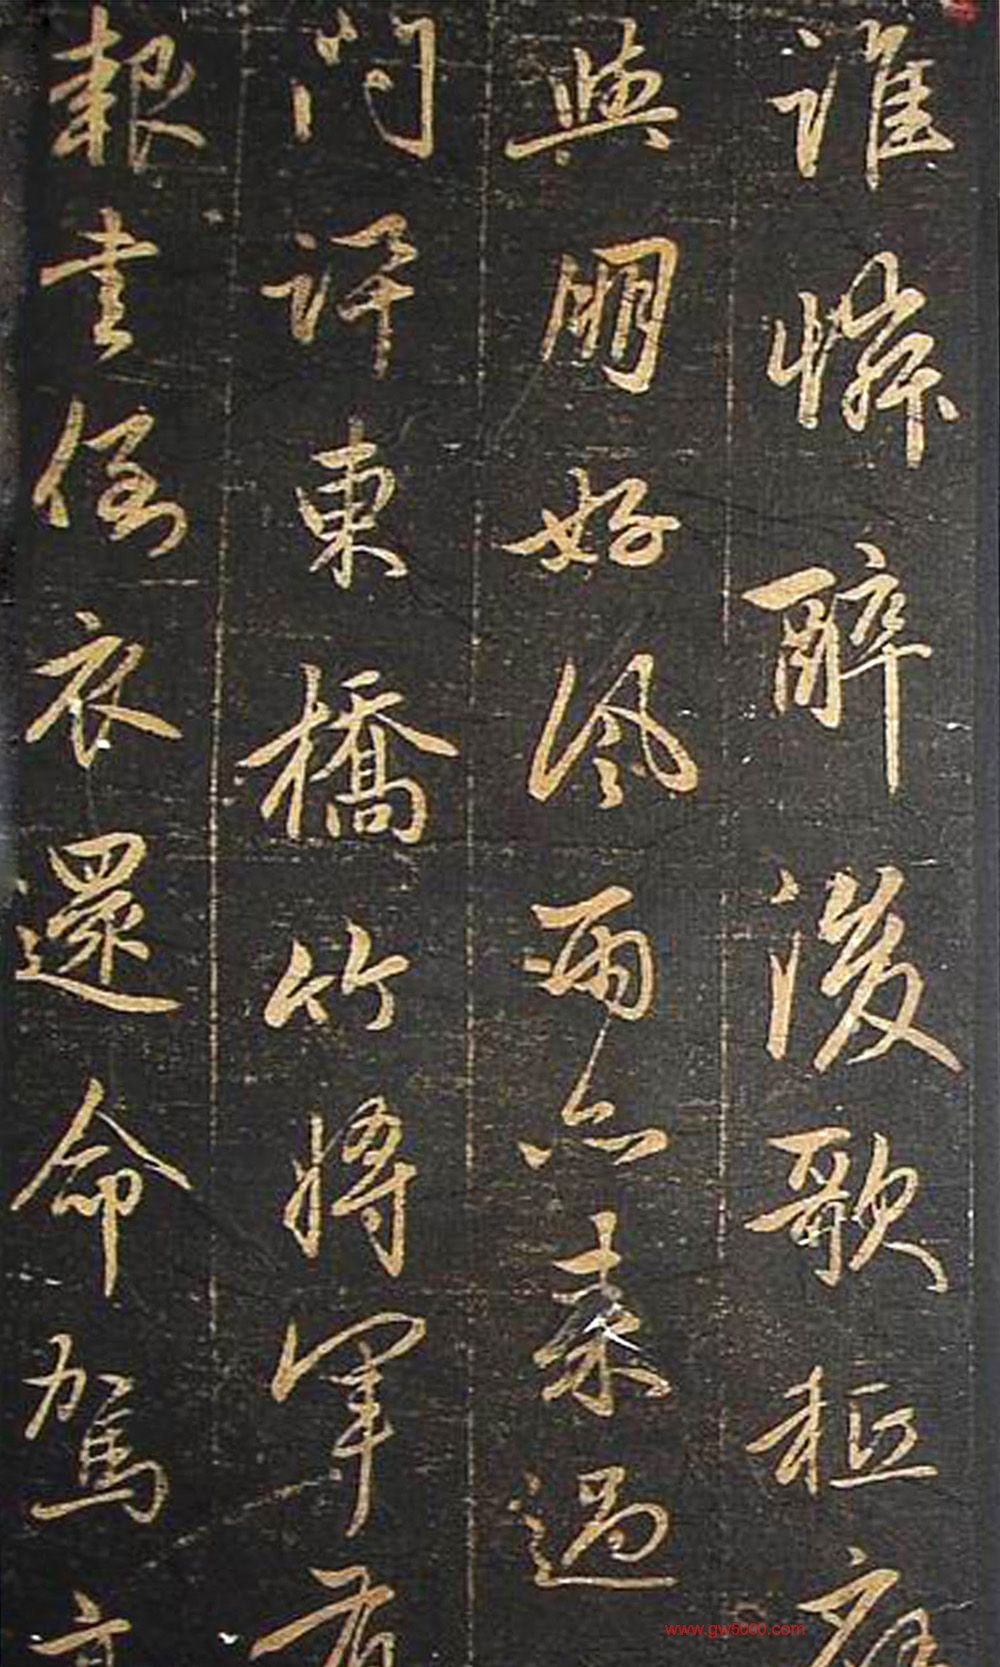 誰憐醉後歌秪應
與朋好風雨亦來過
問訊東橋竹將軍有
報書倒衣還命駕高
www.gw5000.com